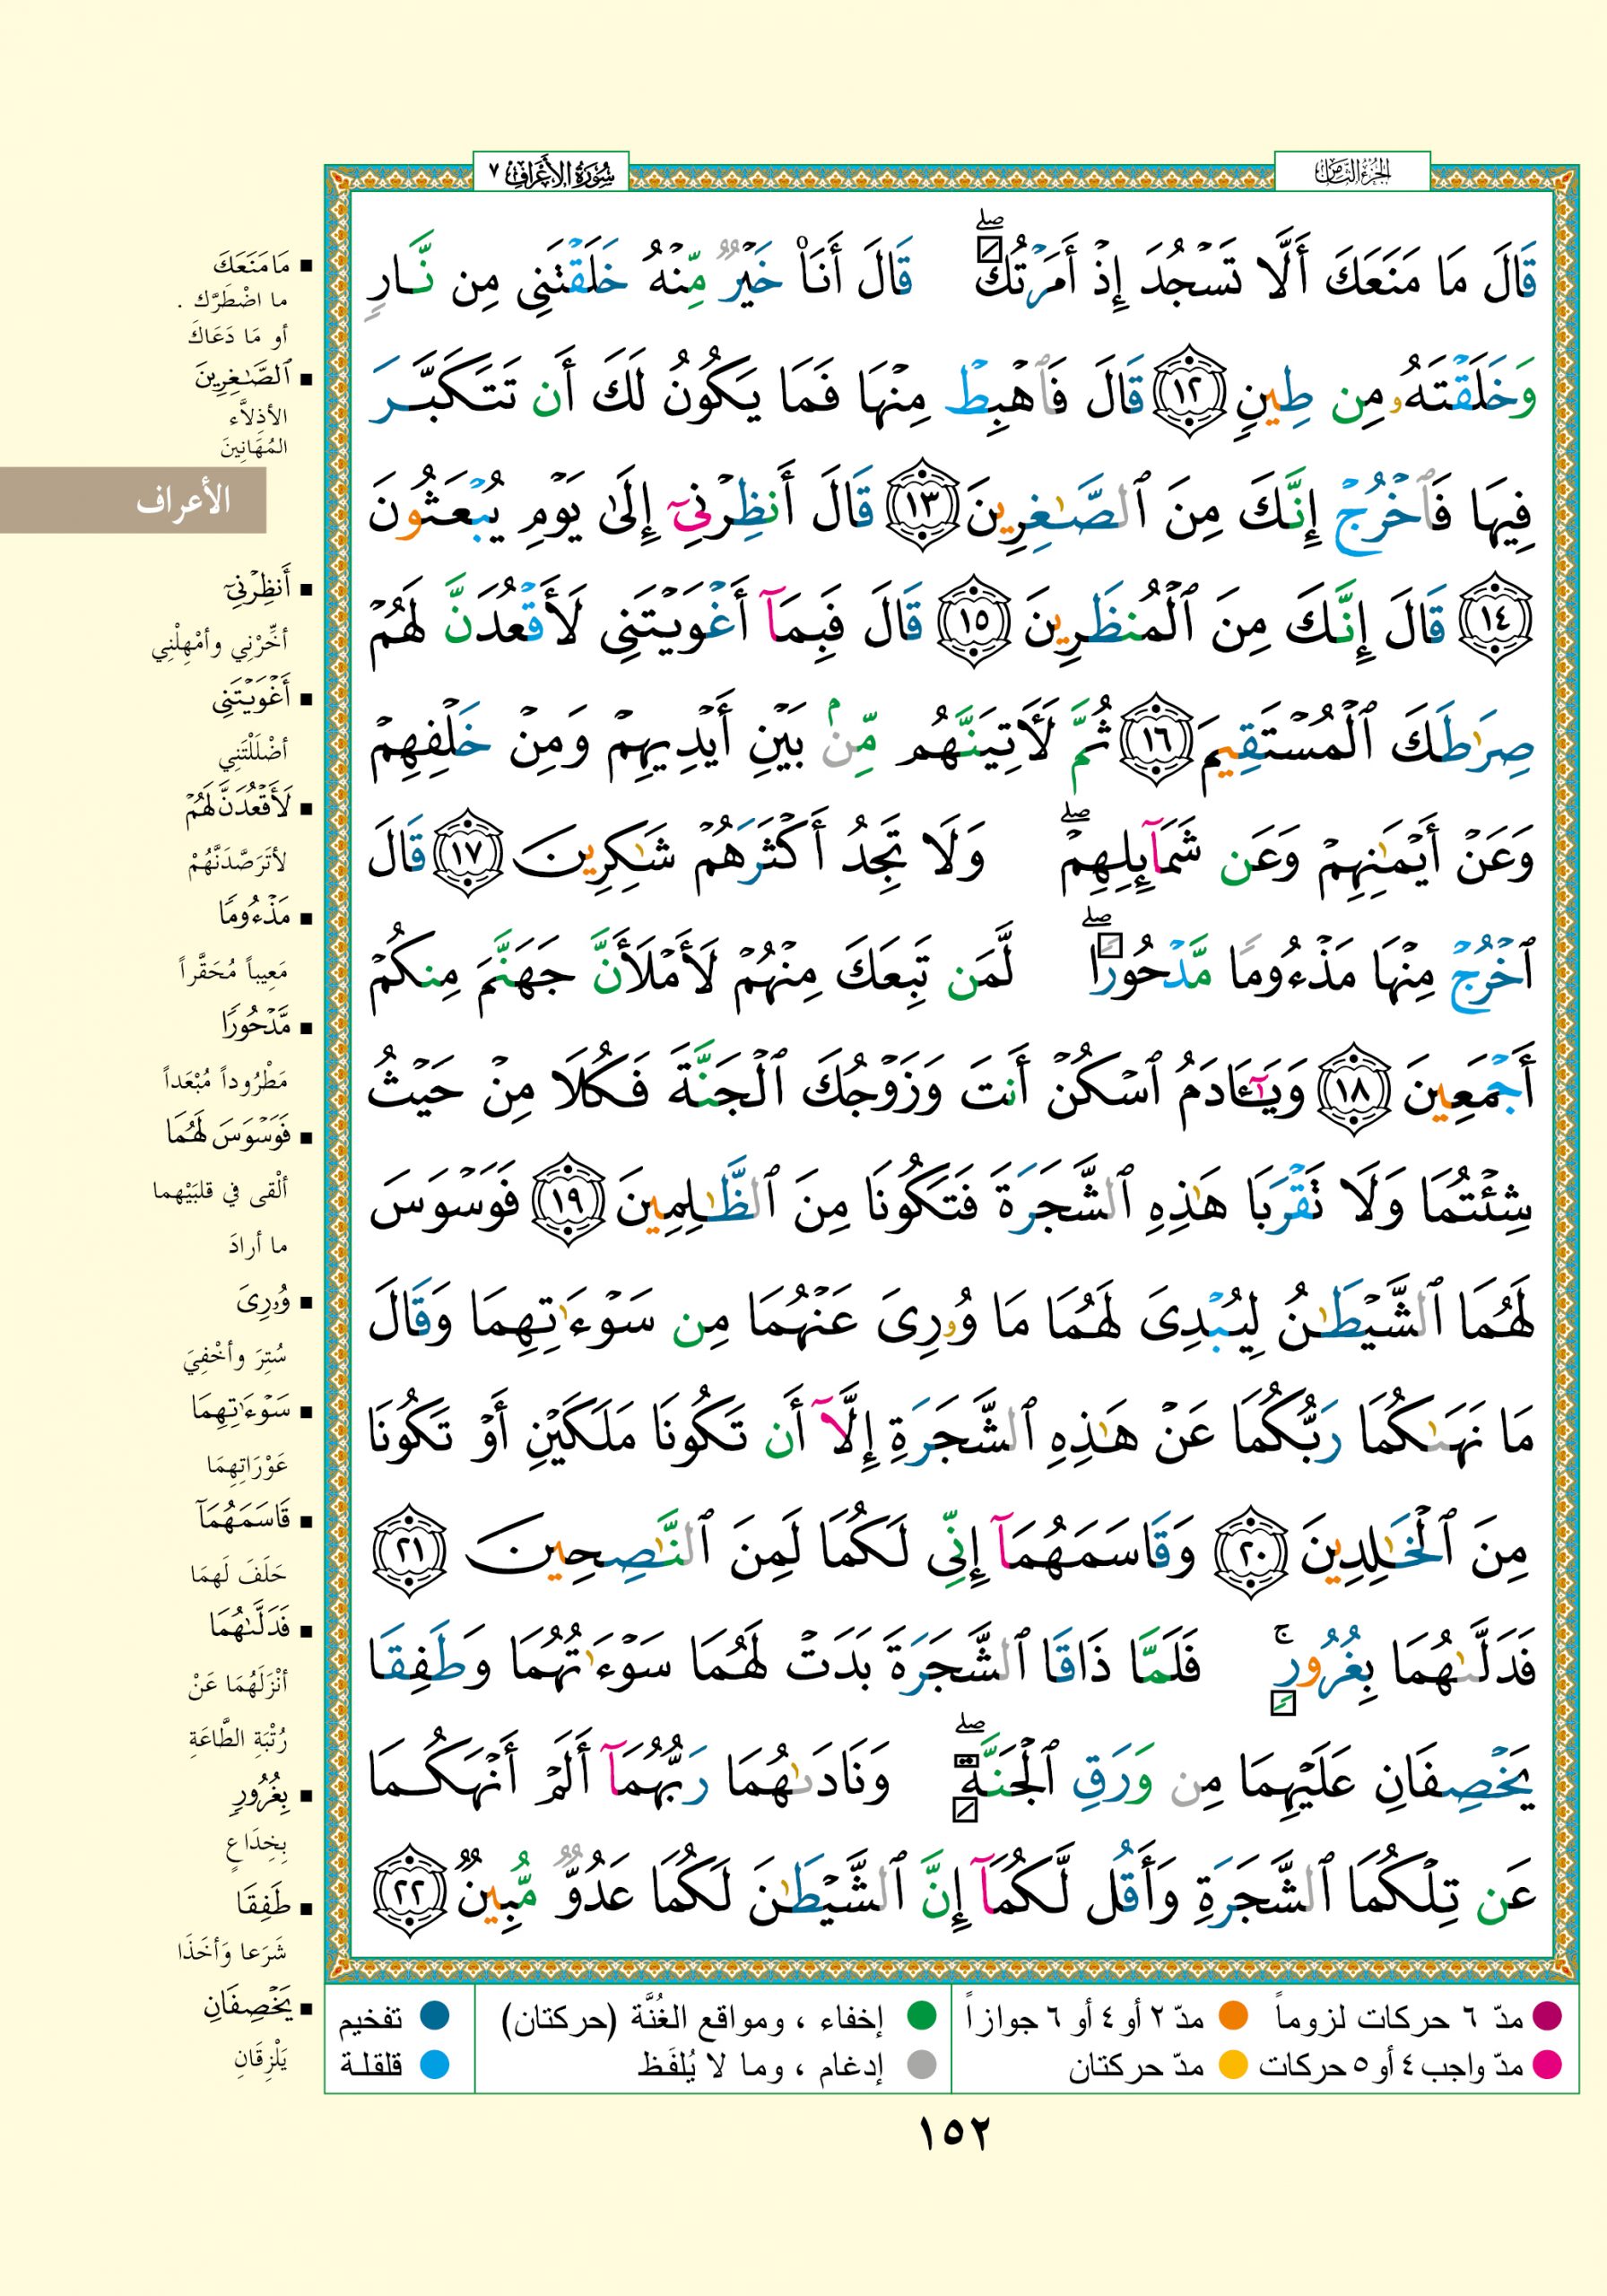 الجزء الثامن
سورة الأعراف ٧
قَالَ مَا مَنَعَكَ أَلَّا تَسْجُدَ إِذْ أَمَرْتُكَ ۖ قَالَ أَنَا۠ خَيْرٌ مِّنْهُ خَلَقْتَنِى مِن نَّارٍ
وَخَلَقْتَهُۥ مِن طِينٍ ١٢ قَالَ فَٱهْبِطْ مِنْهَا فَمَا يَكُونُ لَكَ أَن تَتَكَبَّرَ
فِيهَا فَٱخْرُجْ إِنَّكَ مِنَ ٱلصَّٰغِرِينَ ١٣ قَالَ أَنظِرْنِىٓ إِلَىٰ يَوْمِ يُبْعَثُونَ
١٤ قَالَ إِنَّكَ مِنَ ٱلْمُنظَرِينَ ١٥ قَالَ فَبِمَآ أَغْوَيْتَنِى لَأَقْعُدَنَّ لَهُمْ
صِرَٰطَكَ ٱلْمُسْتَقِيمَ ١٦ ثُمَّ لَءَاتِيَنَّهُم مِّنۢ بَيْنِ أَيْدِيهِمْ وَمِنْ خَلْفِهِمْ
وَعَنْ أَيْمَٰنِهِمْ وَعَن شَمَآئِلِهِمْ ۖ وَلَا تَجِدُ أَكْثَرَهُمْ شَٰكِرِينَ ١٧ قَالَ
ٱخْرُجْ مِنْهَا مَذْءُومًا مَّدْحُورًا ۖ لَّمَن تَبِعَكَ مِنْهُمْ لَأَمْلَأَنَّ جَهَنَّمَ مِنكُمْ
أَجْمَعِينَ ١٨ وَيَٰٓـَٔادَمُ ٱسْكُنْ أَنتَ وَزَوْجُكَ ٱلْجَنَّةَ فَكُلَا مِنْ حَيْثُ
شِئْتُمَا وَلَا تَقْرَبَا هَٰذِهِ ٱلشَّجَرَةَ فَتَكُونَا مِنَ ٱلظَّٰلِمِينَ ١٩ فَوَسْوَسَ
لَهُمَا ٱلشَّيْطَٰنُ لِيُبْدِىَ لَهُمَا مَا وُۥرِىَ عَنْهُمَا مِن سَوْءَٰتِهِمَا وَقَالَ
مَا نَهَىٰكُمَا رَبُّكُمَا عَنْ هَٰذِهِ ٱلشَّجَرَةِ إِلَّآ أَن تَكُونَا مَلَكَيْنِ أَوْ تَكُونَا
مِنَ ٱلْخَٰلِدِينَ ٢٠ وَقَاسَمَهُمَآ إِنِّى لَكُمَا لَمِنَ ٱلنَّٰصِحِينَ ٢١
فَدَلَّىٰهُمَا بِغُرُورٍ ۚ فَلَمَّا ذَاقَا ٱلشَّجَرَةَ بَدَتْ لَهُمَا سَوْءَٰتُهُمَا وَطَفِقَا
يَخْصِفَانِ عَلَيْهِمَا مِن وَرَقِ ٱلْجَنَّةِ ۖ وَنَادَىٰهُمَا رَبُّهُمَآ أَلَمْ أَنْهَكُمَا
عَن تِلْكُمَا ٱلشَّجَرَةِ وَأَقُل لَّكُمَآ إِنَّ ٱلشَّيْطَٰنَ لَكُمَا عَدُوٌّ مُّبِينٌ ٢٢
مَا مَنَعَكَ
ما اضْطَرَّك .
أو مَا دَعَاكَ
ٱلصَّٰغِرِينَ
الأذِلاَّء
المُهَانِينَ
الأعراف
أَنظِرْنِىٓ
أخِّرْنِي وأمْهِلْنِي
أَغْوَيْتَنِى
أضْلَلْتَنِي
لَأَقْعُدَنَّ لَهُمْ
لأتَرَصَّدَنَّهُمْ
مَذْءُومًا
مَعِيباً مُحَقَّراً
مَّدْحُورًا
مَطْرُوداً مُبْعَداً
فَوَسْوَسَ لَهُمَا
ألْقى في قلبَيْهما
ما أرادَ
وُۥرِىَ
سُتِرَ وأخْفِيَ
سَوْءَٰتِهِمَا
عَوْرَاتِهِمَا
قَاسَمَهُمَآ
حَلَفَ لَهمَا
فَدَلَّىٰهُمَا
أنْزَلَهُمَا عَنْ
رُتْبَةِ الطَّاعَةِ
بِغُرُورٍ
بِخِدَاعٍ
طَفِقَا
شَرَعا وَأخَذَا
يَخْصِفَانِ
يَلْزِقَانِ
مدّ ٦ حركات لزوماً
مدّ ٢ أو ٤ أو ٦ جوازاً
إخفاء ، ومواقع الغُنَّة (حركتان)
تفخيم
مدّ واجب ٤ أو ٥ حركات
مدّ حركتان
إدغام ، وما لا يُلفَظ
قلقلة
١٥٢